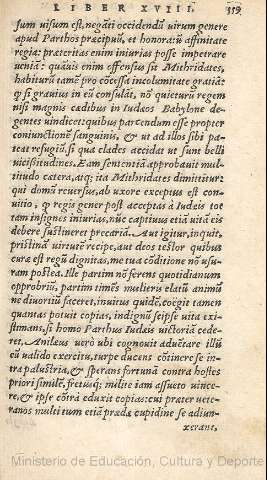 LIBER XVIII. 319
sum uisum est, negāti occidendū uirum genere
apud Parthos præcipuū, et honoratū affinitate
regia: præteritas enim iniurias posse impetrare
ueniā: quāuis enim offensus sit Mithridates,
habiturū tamē pro cōcessa incolumitate gratiā:
ꝙ si grauius in eū consulāt, nō quieturū regem
nisi magnis cædibus in Iudæos Babylone de-
gentes uindicet: quibus parcendum esse propter
coniunctionē sanguinis, & ut ad illos sibi pa-
teat refugiū, si qua clades accidat ut sunt belli
uicissitudines. Eam sententiā approbauit mul-
titudo cætera, atq; ita Mithridates dimittitur:
qui domū reuersus, ab uxore exceptus est con-
uitio, ꝙ regis gener post acceptas à Iudæis tot
tam insignes iniurias, nūc captiuus etiā uitā eis
debere sustineret precariā. Aut igitur, inquit,
pristinā uirtutē recipe, aut deos testor quibus
cura est regū dignitas, me tua cōditione nō usu-
ram postea. Ille partim nō ferens quotidianum
opprobriū, partim timēs mulieris elatū animū
ne diuortiū faceret, inuitus quidē, coegit tamen
quantas potuit copias, indignū seipse uita exi-
stimans, si homo Parthus Iudæis uictoriā cede-
ret. Anilæus uerò ubi cognouit aduētare illū
cū ualido exercitu, turpe ducens cōtinere se in-
tra palustria, & sperans fortunā contra hostes
priori similē, fretusq; milite iam assueto uince-
re, & ipse cōtrà eduxit copias: cui præter uete-
ranos multi tum etiā prædæ cupidine se adiun-
xerant,
Ministerio de Educación, Cultura y Deporte